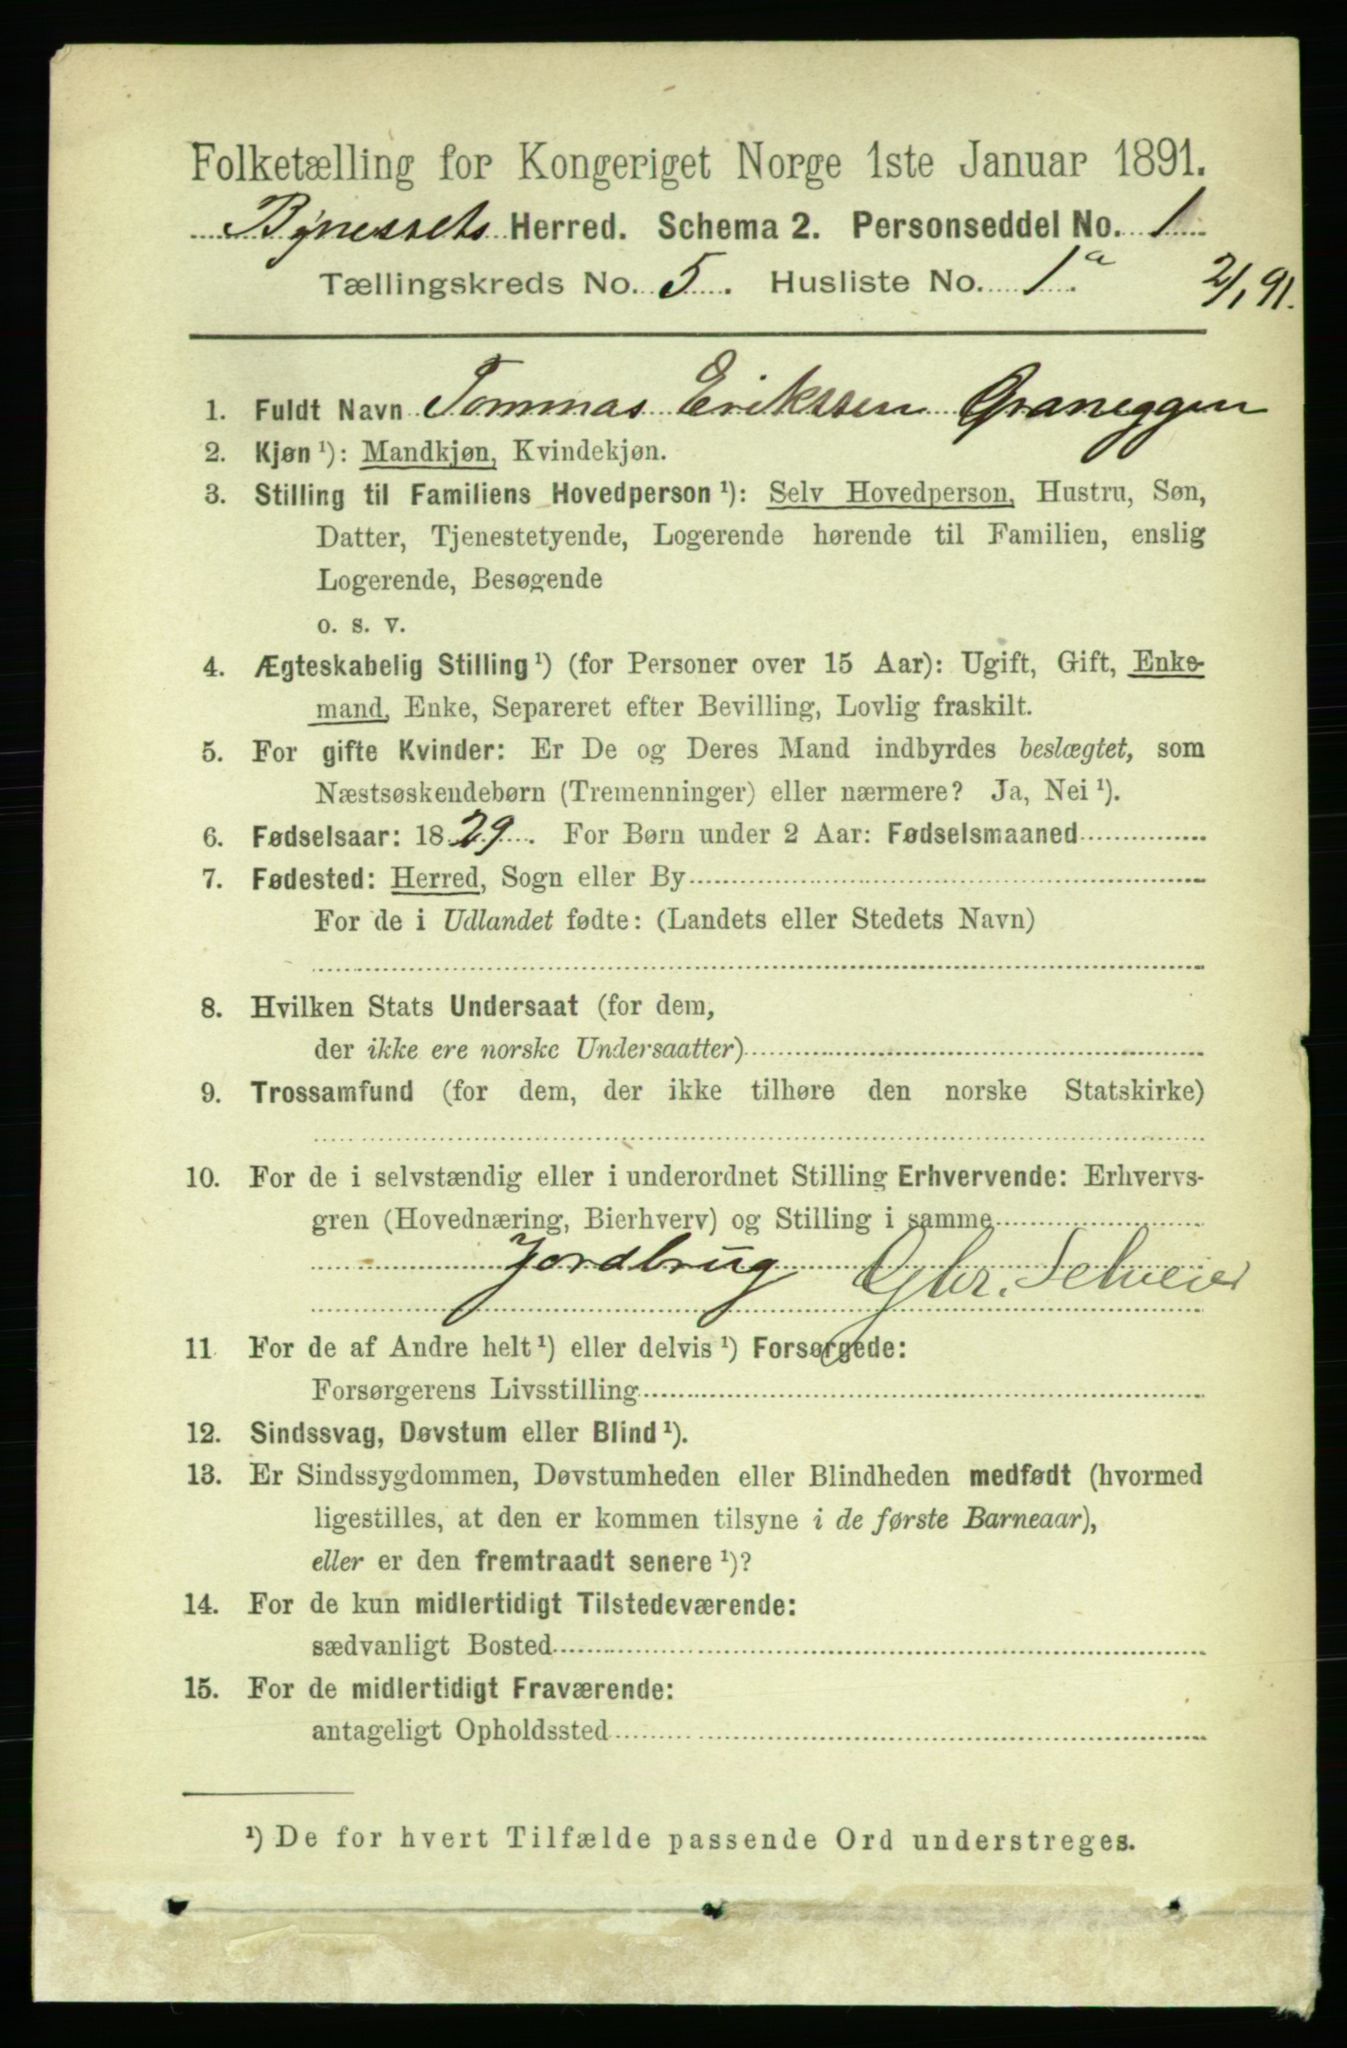 Folketælling for Kongeriget Norge 1ste Januar 1891.
Bynessets Herred. Schema 2. Personseddel No. 1
Tællingskreds No. 5. Husliste No. 1a. 2/1 91.
1. Fuldt Navn Tommas Erikssen Graneggen
2. Kjøn ¹): Mandkjøn, Kvindekjøn.
3. Stilling til Familiens Hovedperson ¹): Selv Hovedperson, Hustru, Søn,
Datter, Tjenestetyende, Logerende hørende til Familien, enslig
Logerende, Besøgende
o. s. v.
4. Ægteskabelig Stilling ¹) (for Personer over 15 Aar): Ugift, Gift, Enke-
mand, Enke, Separeret efter Bevilling, Lovlig fraskilt.
5. For gifte Kvinder: Er De og Deres Mand indbyrdes beslægtet, som
Næstsøskendebørn (Tremenninger) eller nærmere? Ja, Nei ¹).
6. Fødselsaar: 1829. For Børn under 2 Aar: Fødselsmaaned
7. Fødested: Herred, Sogn eller By
For de i Udlandet fødte: (Landets eller Stedets Navn)
8. Hvilken Stats Undersaat (for dem,
der ikke ere norske Undersaatter)
9. Trossamfund (for dem, der ikke tilhøre den norske Statskirke)
10. For de i selvstændig eller i underordnet Stilling Erhvervende: Erhvervs-
gren (Hovednæring, Bierhverv) og Stilling i samme
Jordbrug Gbr. Selveier
11 For de af Andre helt ¹) eller delvis ¹) Forsørgede:
Forsørgerens Livsstilling
12. Sindssvag, Døvstum eller Blind ¹).
13. Er Sindssygdommen, Døvstumheden eller Blindheden medfødt (hvormed
ligestilles, at den er kommen tilsyne i de første Barneaar),
eller er den fremtraadt senere ¹)?
14. For de kun midlertidigt Tilstedeværende:
sædvanligt Bosted
15. For de midlertidigt Fraværende:
antageligt Opholdssted
¹) De for hvert Tilfælde passende Ord understreges.